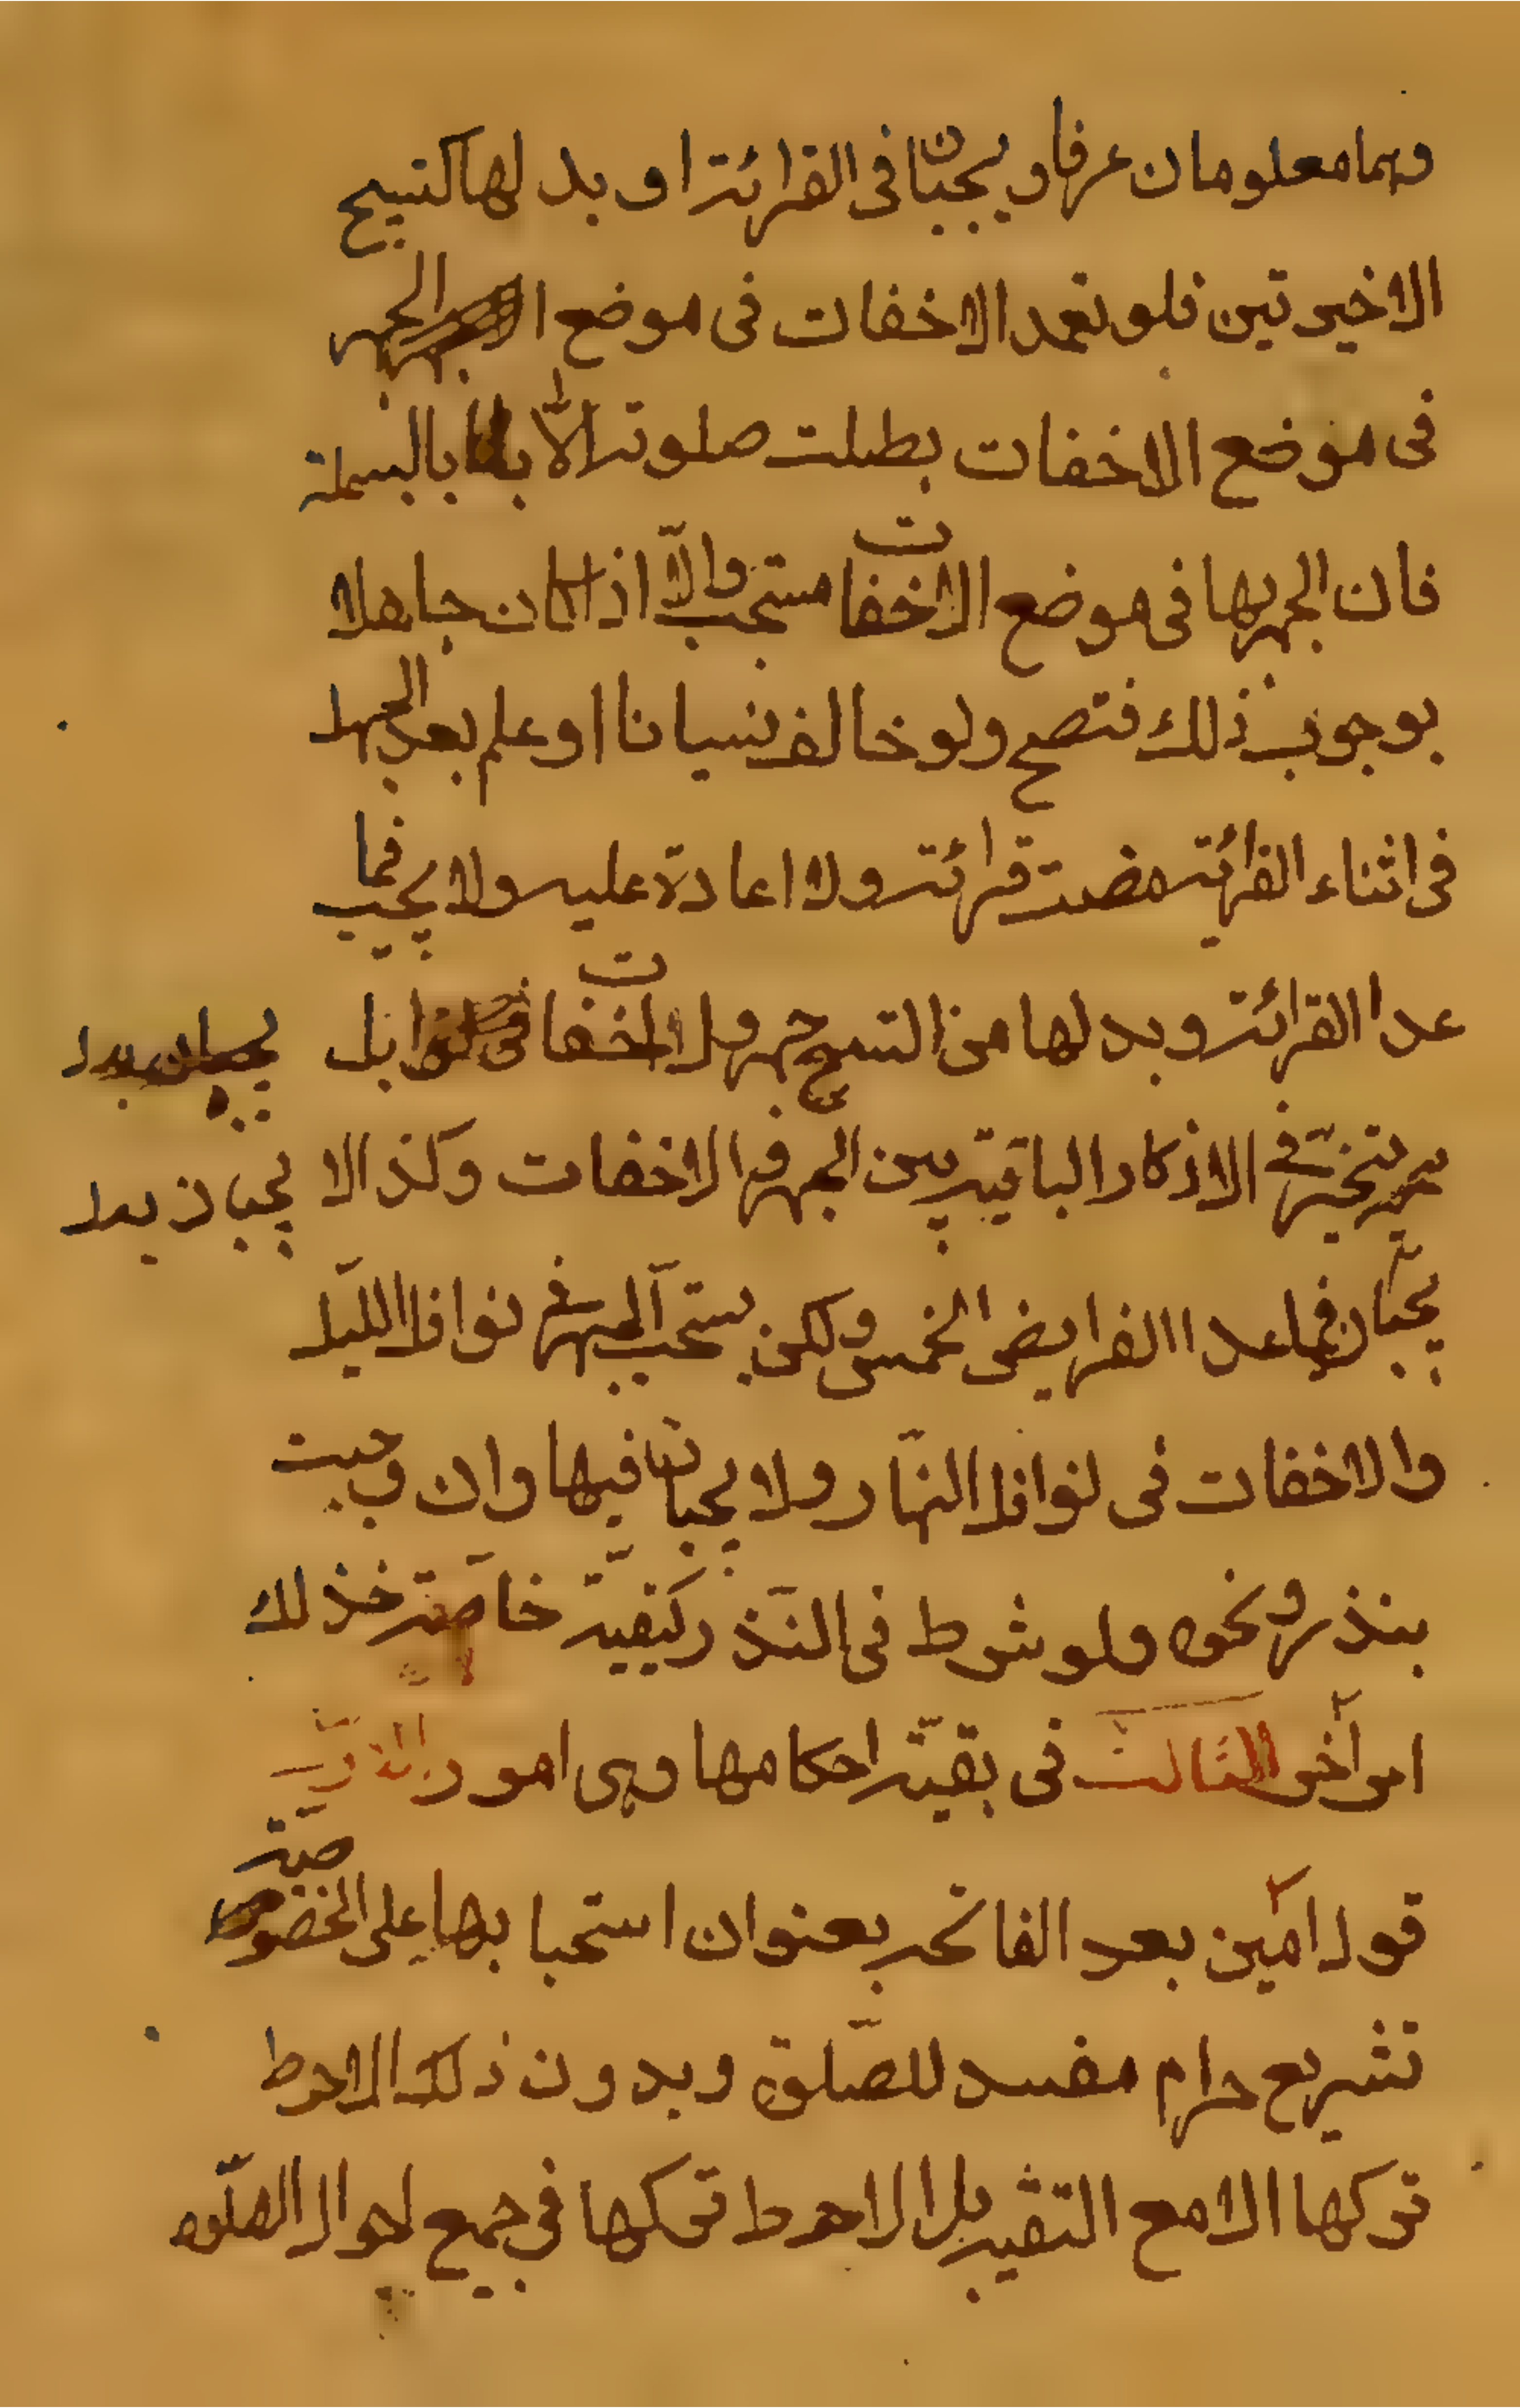 وهما معلومان عرفا ويجبان فى القرائة او بدلها كتسبيح
الاخيرتين فلو تعمد الاخفات فى موضع الجهر
فى موضع الاخفات بطلت صلوته الّا بالبسملة
فان الجهر بها فى موضع الاخفات مستحب والّا اذا كان جاهلا
بوجوب ذلك فتصح ولو خالف نسيانا او علم بعد الجهل
فى اثناء القرائة مضت قرائته ولا اعادة عليه ولا يجب فيما
عدا القرائة وبدلها من التسبيح جهر ولا اخفات بل
يتخيّر فى الاذكار الباقية بين الجهر والاخفات وكذا لا
يجبان فيما عدا الفرايض الخمس ولكن يستحب الجهر فى نوافل الليل
والاخفات فى نوافل النهار ولا يجبان فيها وان وجبت
بنذر ونحوه ولو شرط فى النذر كيفية خاصة فذلك
امر آخر الثالث فى بقيّة احكامها وهى امور الاوّل
قول آمين بعد الفاتحه بعنوان استحبابها على الخصوصيّة
تشريع حرام مفسد للصّلوة وبدون ذلك الاحوط
تركها الا مع التقيه بل الاحوط تركها فى جميع احوال الصّلوه